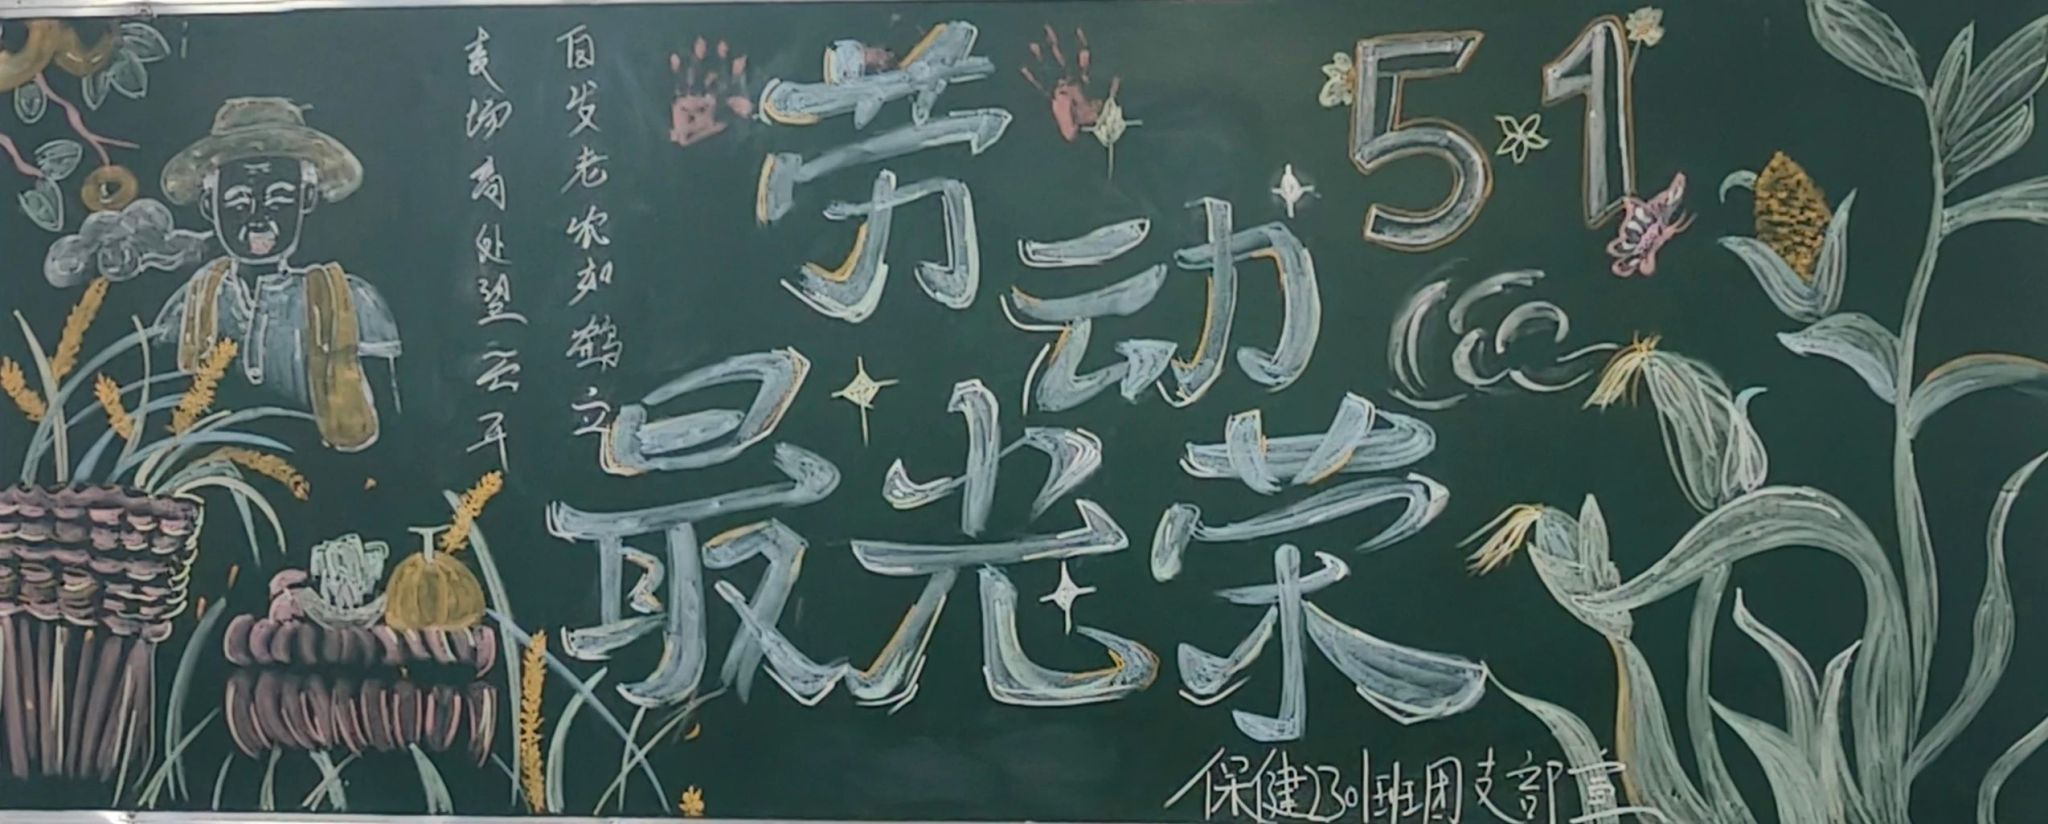 白发老农如鹤立
麦场高处望云开
劳动
51
最光荣
保健2301班团支部宣